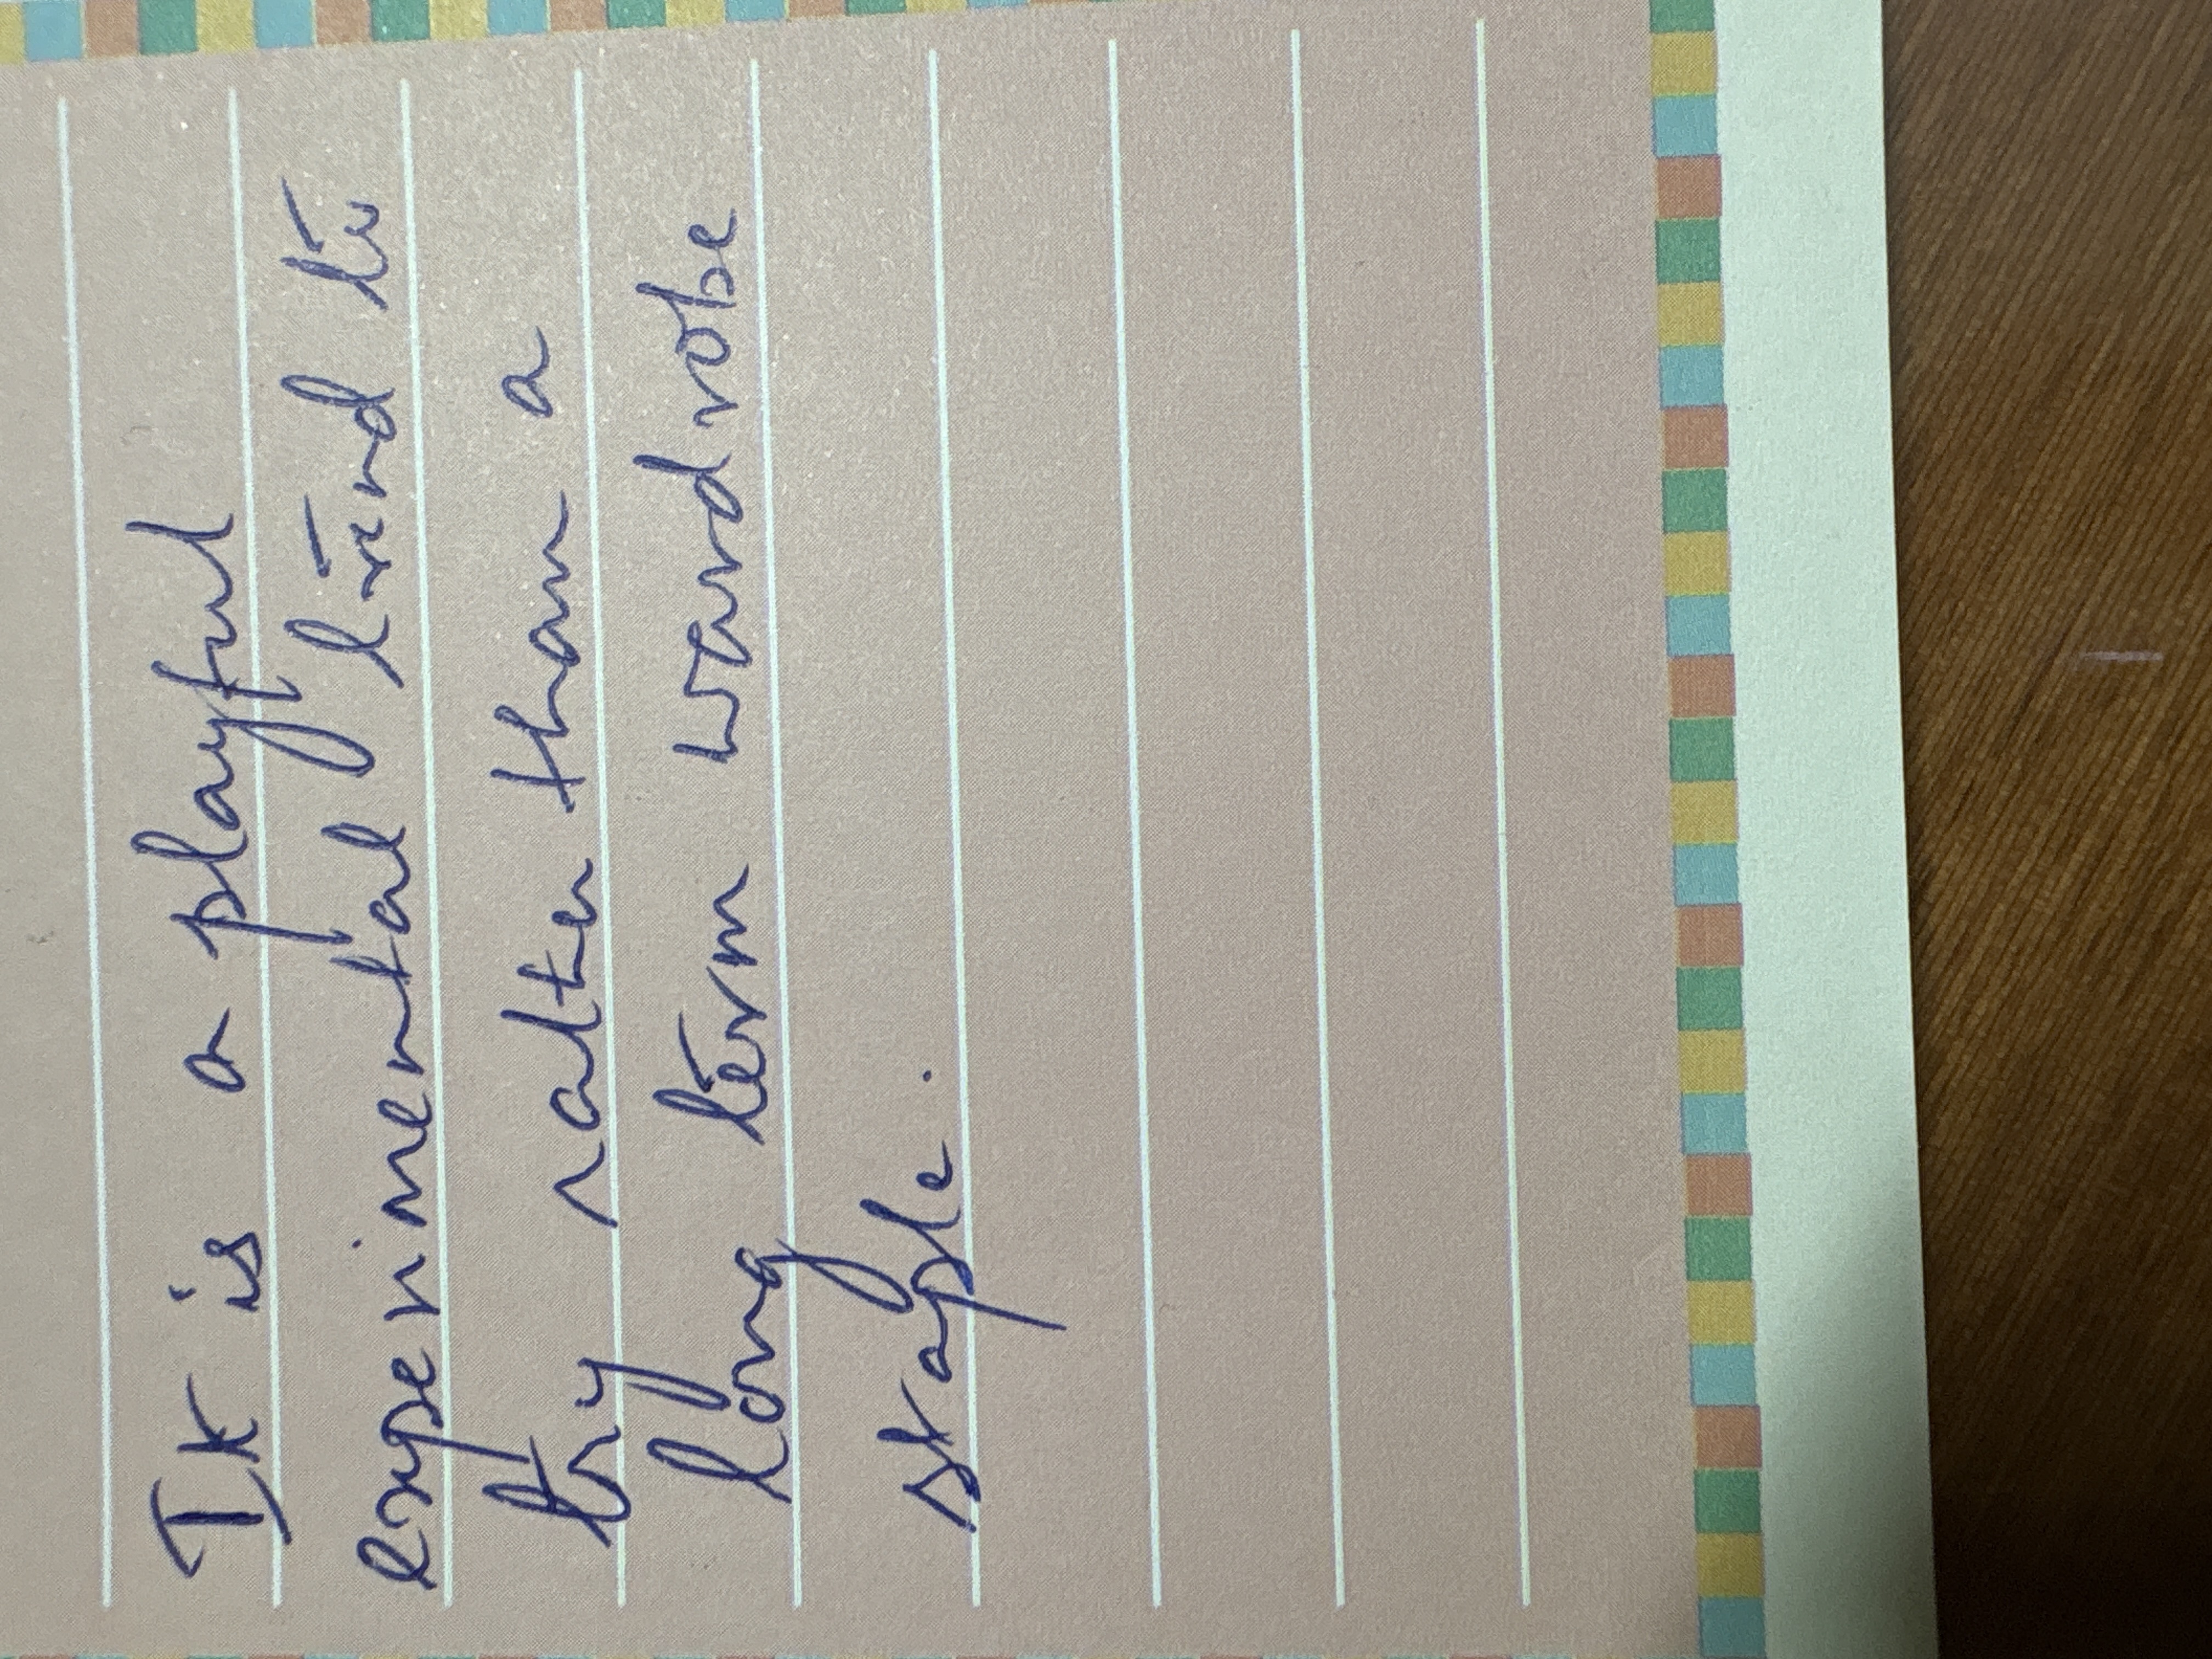 It is a playful
experimental trend to
try rather than a
long term wardrobe
staple.